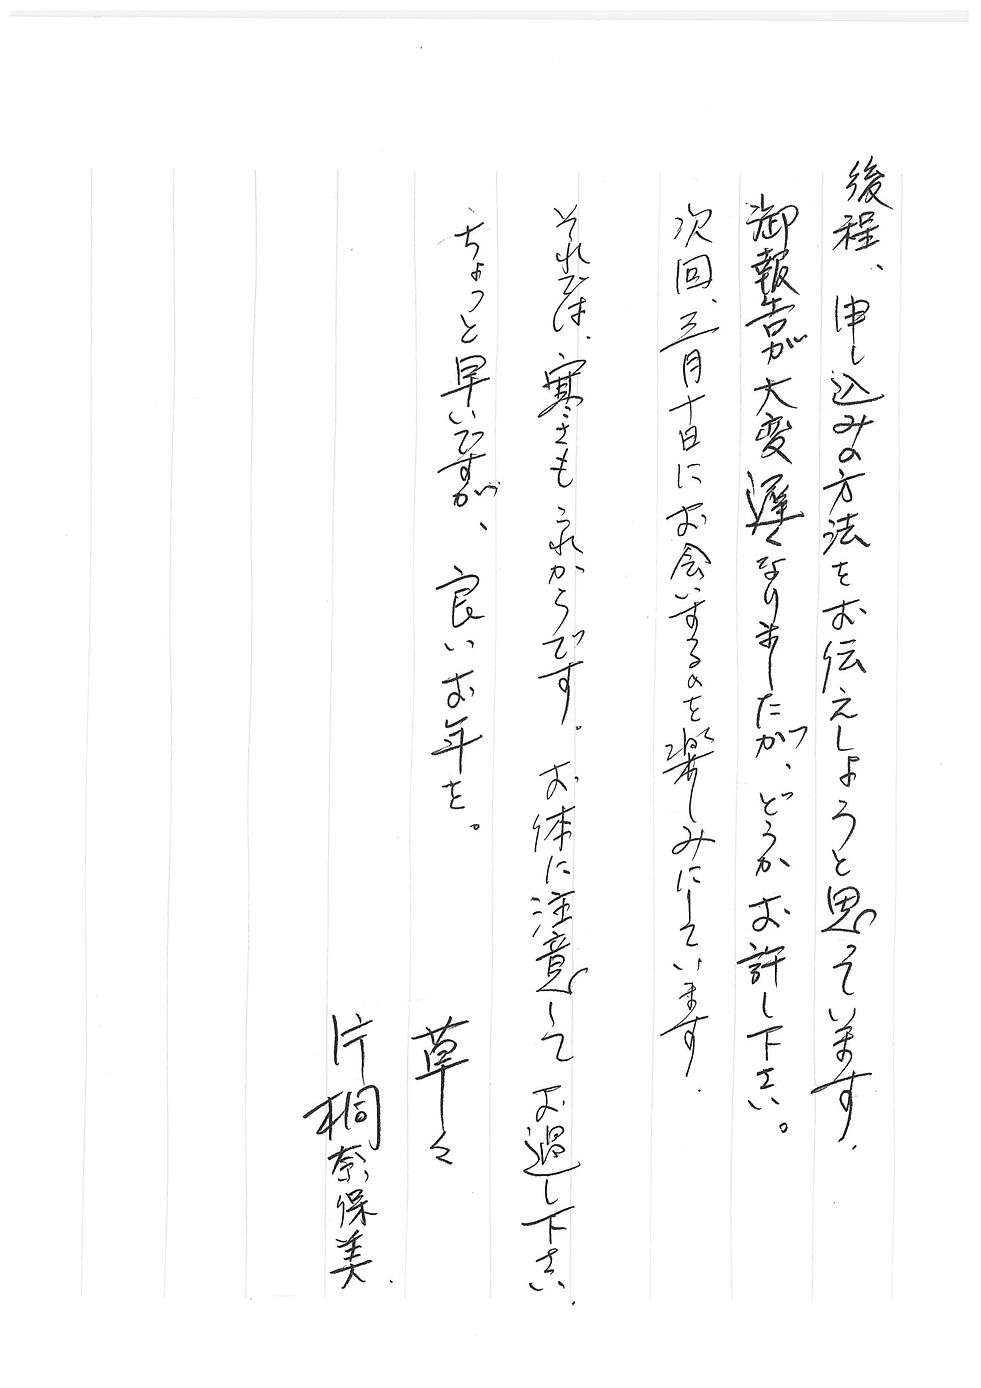 後程、申し込みの方法をお伝えしようと思っています.
御報告が大変遅くなりましたが、どうかお許し下さい。
次回、三月十日にお会いするのを楽しみにしています.
それでは、寒さもこれからです.お体に注意してお過し下さい.
ちょっと早いですが、良いお年を。
草々
片桐奈保美.